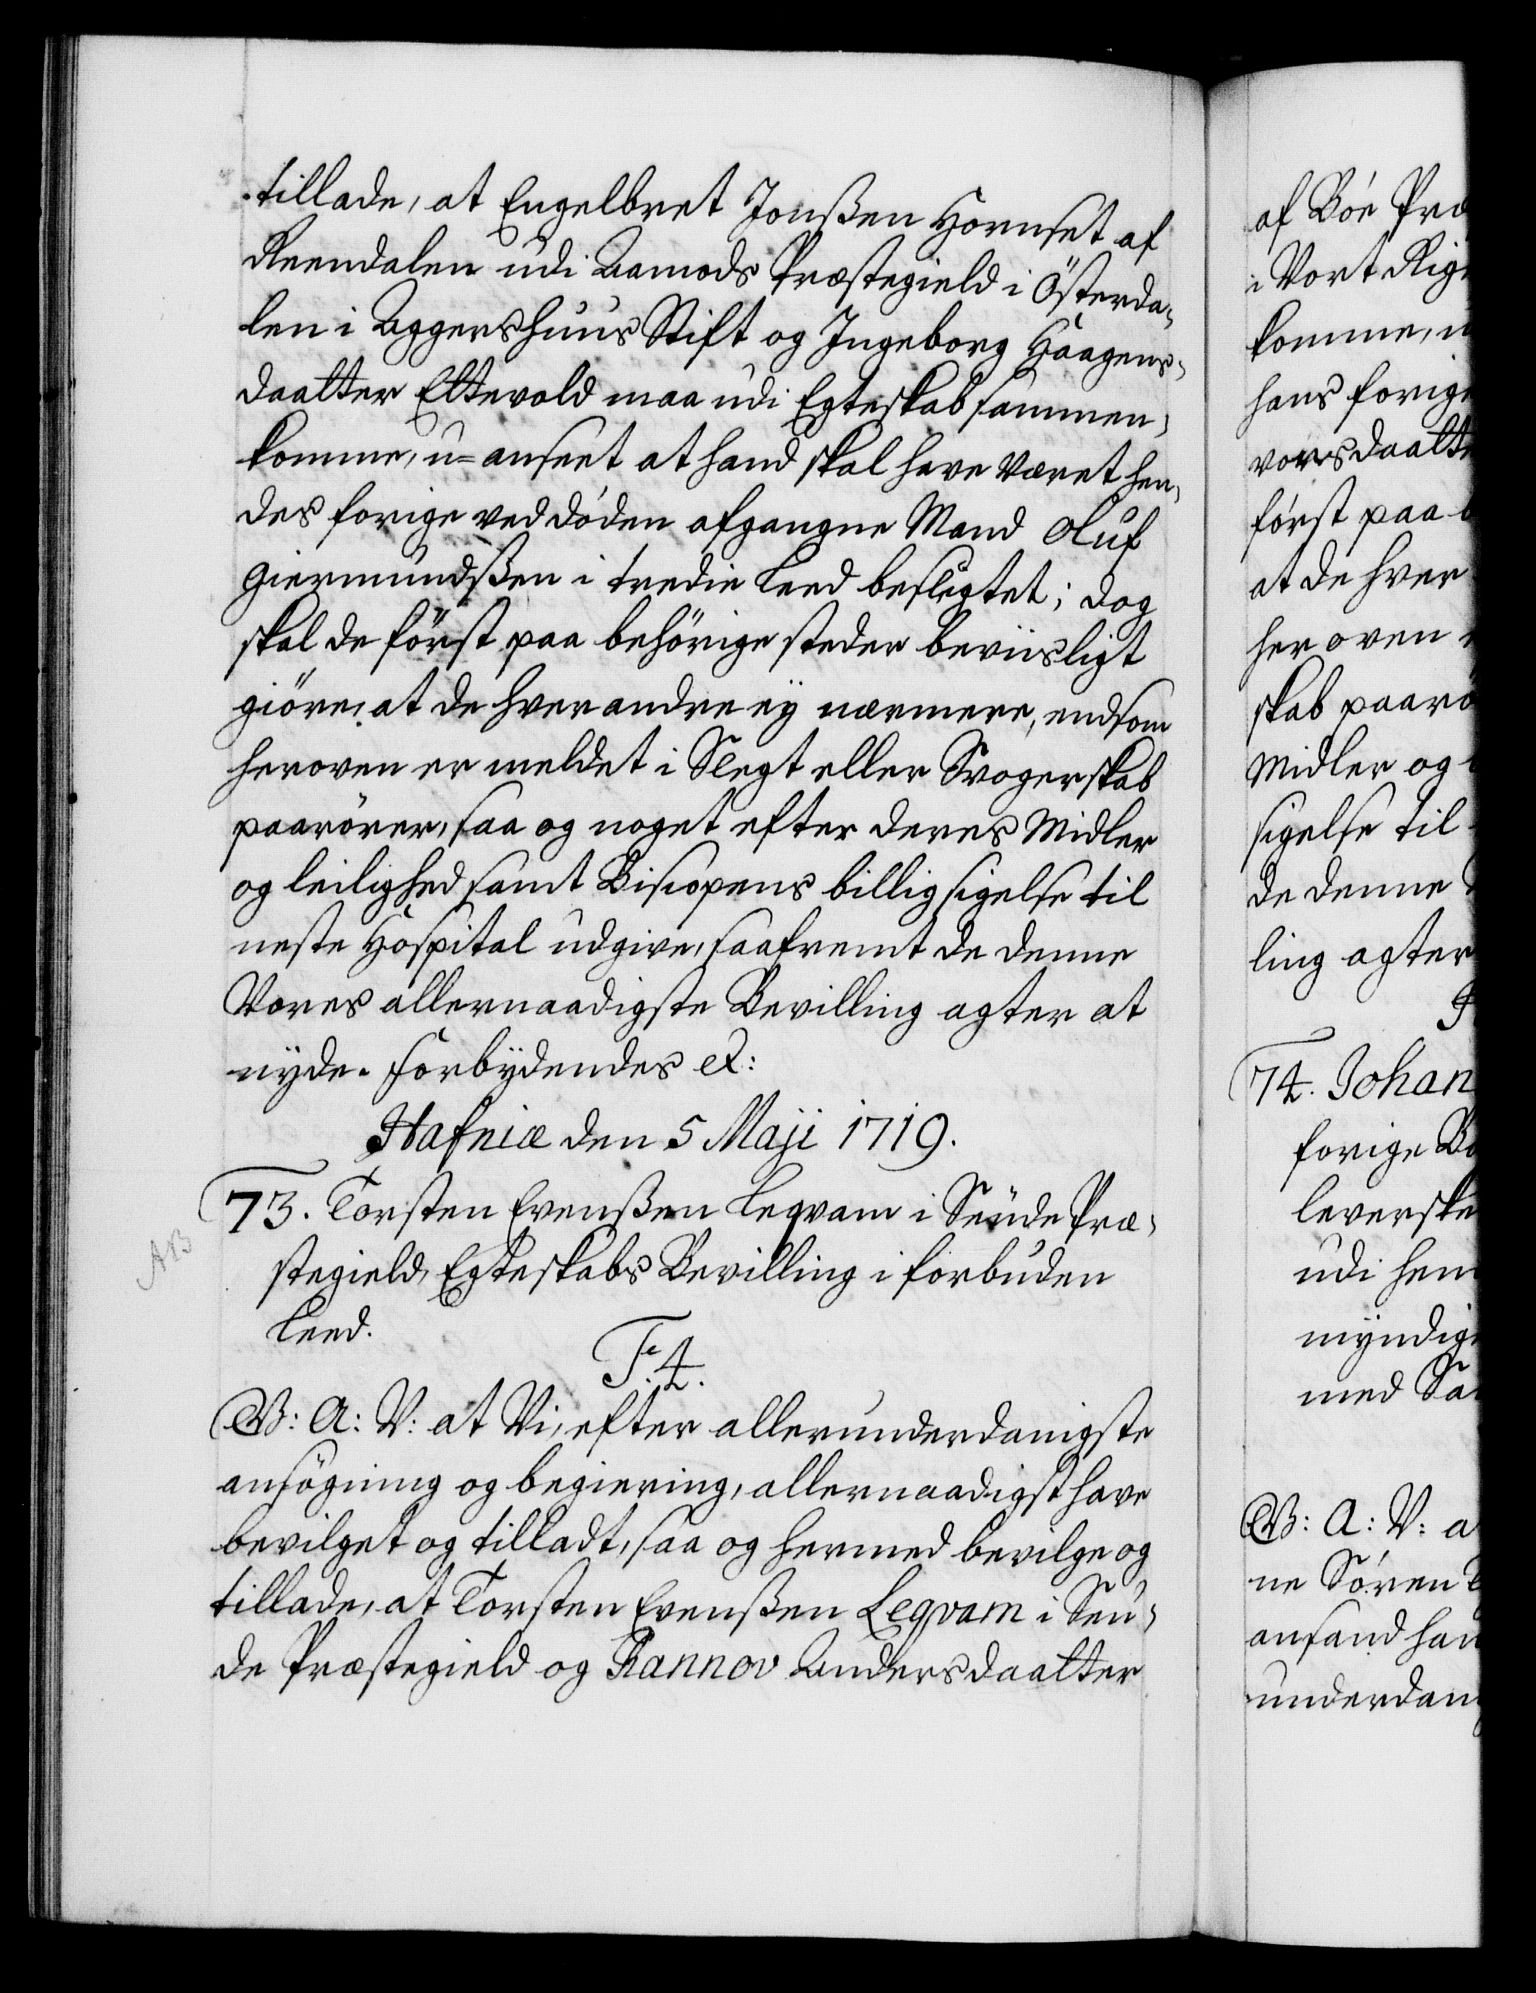 tillade, at Engelbret Jonßen Hornset af
Reendalen udi Aamods Præstegield i Österda-
len i Aggershuus Stift og Ingeborg Haagens-
daatter Eltevold maa udi Egteskab sammen-
komme, u-anseet at hand skal have været hen-
des forige ved döden afgangne Mand Oluf
Giermundßen i tredie Leed beslegtet; dog
skal de först paa behörige steder beviisligt
giöre, at de hverandre ey nærmere, endsom
heroven er meldet i Slegt eller Svogerskab
paarörer, saa og noget efter deres Midler
og leilighed samt Biscopens billigsigelse til
neste Hospital udgive, saafremt de denne
Vores allernaadigste Bevilling agter at
nyde. Forbydendes &:
Hafniæ den 5 Maji 1719.
73. Torsten Evenßen Leqvam i Seude Præ-
AB
stegield, Egteskabs Bevilling i forbuden
Leed.
F. 4.
G. V: A: V: at Vi, efter allerunderdanigste
ansögning og begiering, allernaadigst have
bevilget og tilladt, saa og hermed bevilge og
tillade, at Torsten Evenßen Leqvam i Seu-
de Præstegield og Rannov Andersdaatter
af Böe Præ
i Vort Rige
komme, u
hans forige
vorsdaatte
först paa b
at de hver
heroven
skab paarö
Midler og
sigelse til
de denne
ling agter
74. Johan
forige Bo
leverske
udi hen
myndige
med Sa
V: A: V: a
ne Sören
ansand han
underdan